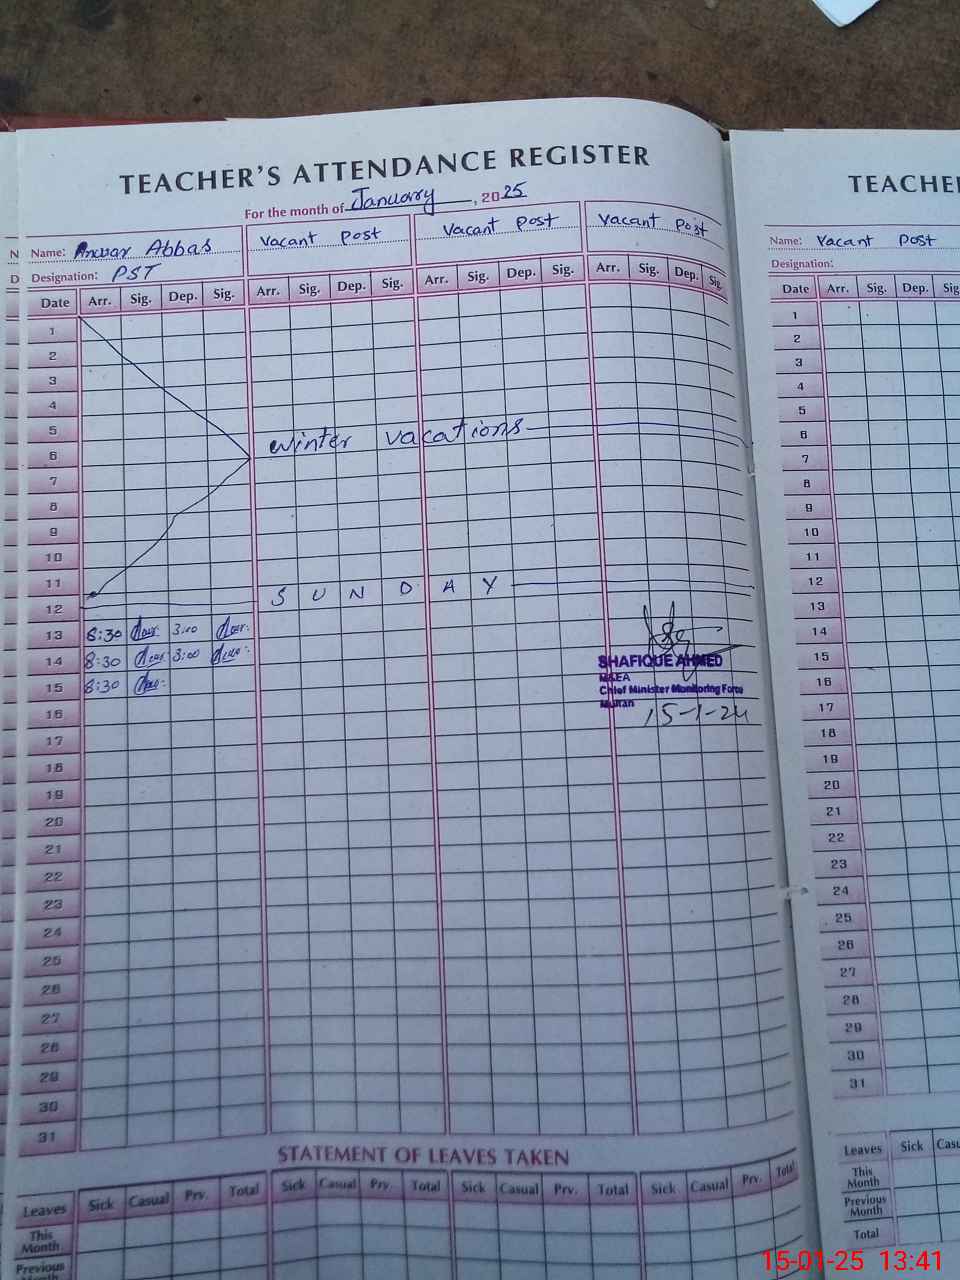 TEACHER'S ATTENDANCE REGISTER
For the month of January, 2025
Name: Anwar Abbas
Vacant Post
Vacant Post
Vacant Post
Designation: PST
Date Arr. Sig. Dep. Sig. Arr. Sig. Dep. Sig. Arr. Sig. Dep. Sig. Arr. Sig. Dep. Sig.
1
2
3
4
5
6 winter vacations
7
8
9
10
11
12 SUNDAY
13 8:30 3:00
14 8:30 3:00
15 8:30
SHAFIQUE AHMED
MEA
Chief Minister Monitoring Force
Multan
15-1-24
16
17
18
19
20
21
22
23
24
25
26
27
28
29
30
31
STATEMENT OF LEAVES TAKEN
Leaves Sick Casual Prv. Total Sick Casual Prv. Total Sick Casual Prv. Total Sick Casual Prv. Total
This
Month
Previous
TEACHE
Name: Vacant Post
Designation:
Date Arr. Sig. Dep. Sig
1
2
3
4
5
6
7
8
9
10
11
12
13
14
15
16
17
18
19
20
21
22
23
24
25
26
27
28
29
30
31
Leaves Sick Casu
This
Month
Previous
Month
Total
15-01-25 13:41